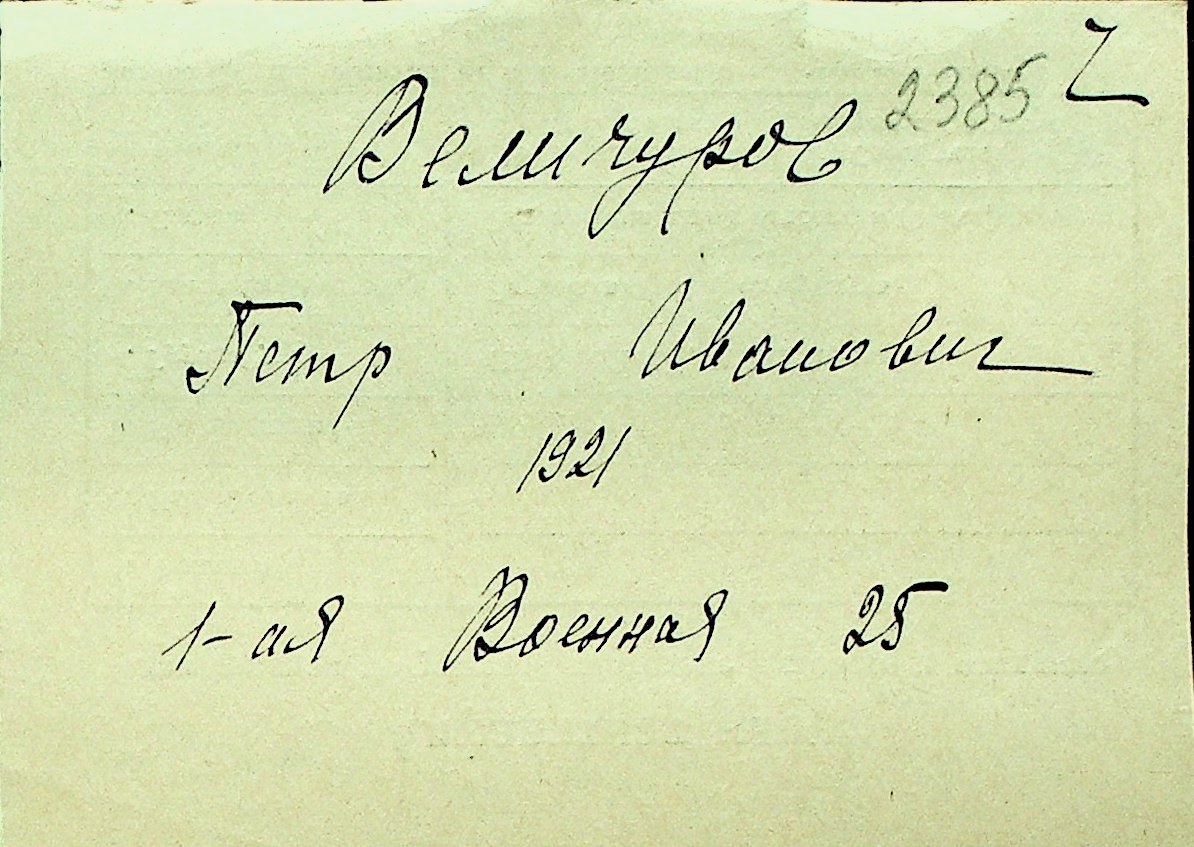 2385
Величуров
Петр Иванович
1921
1-ая Военная 25